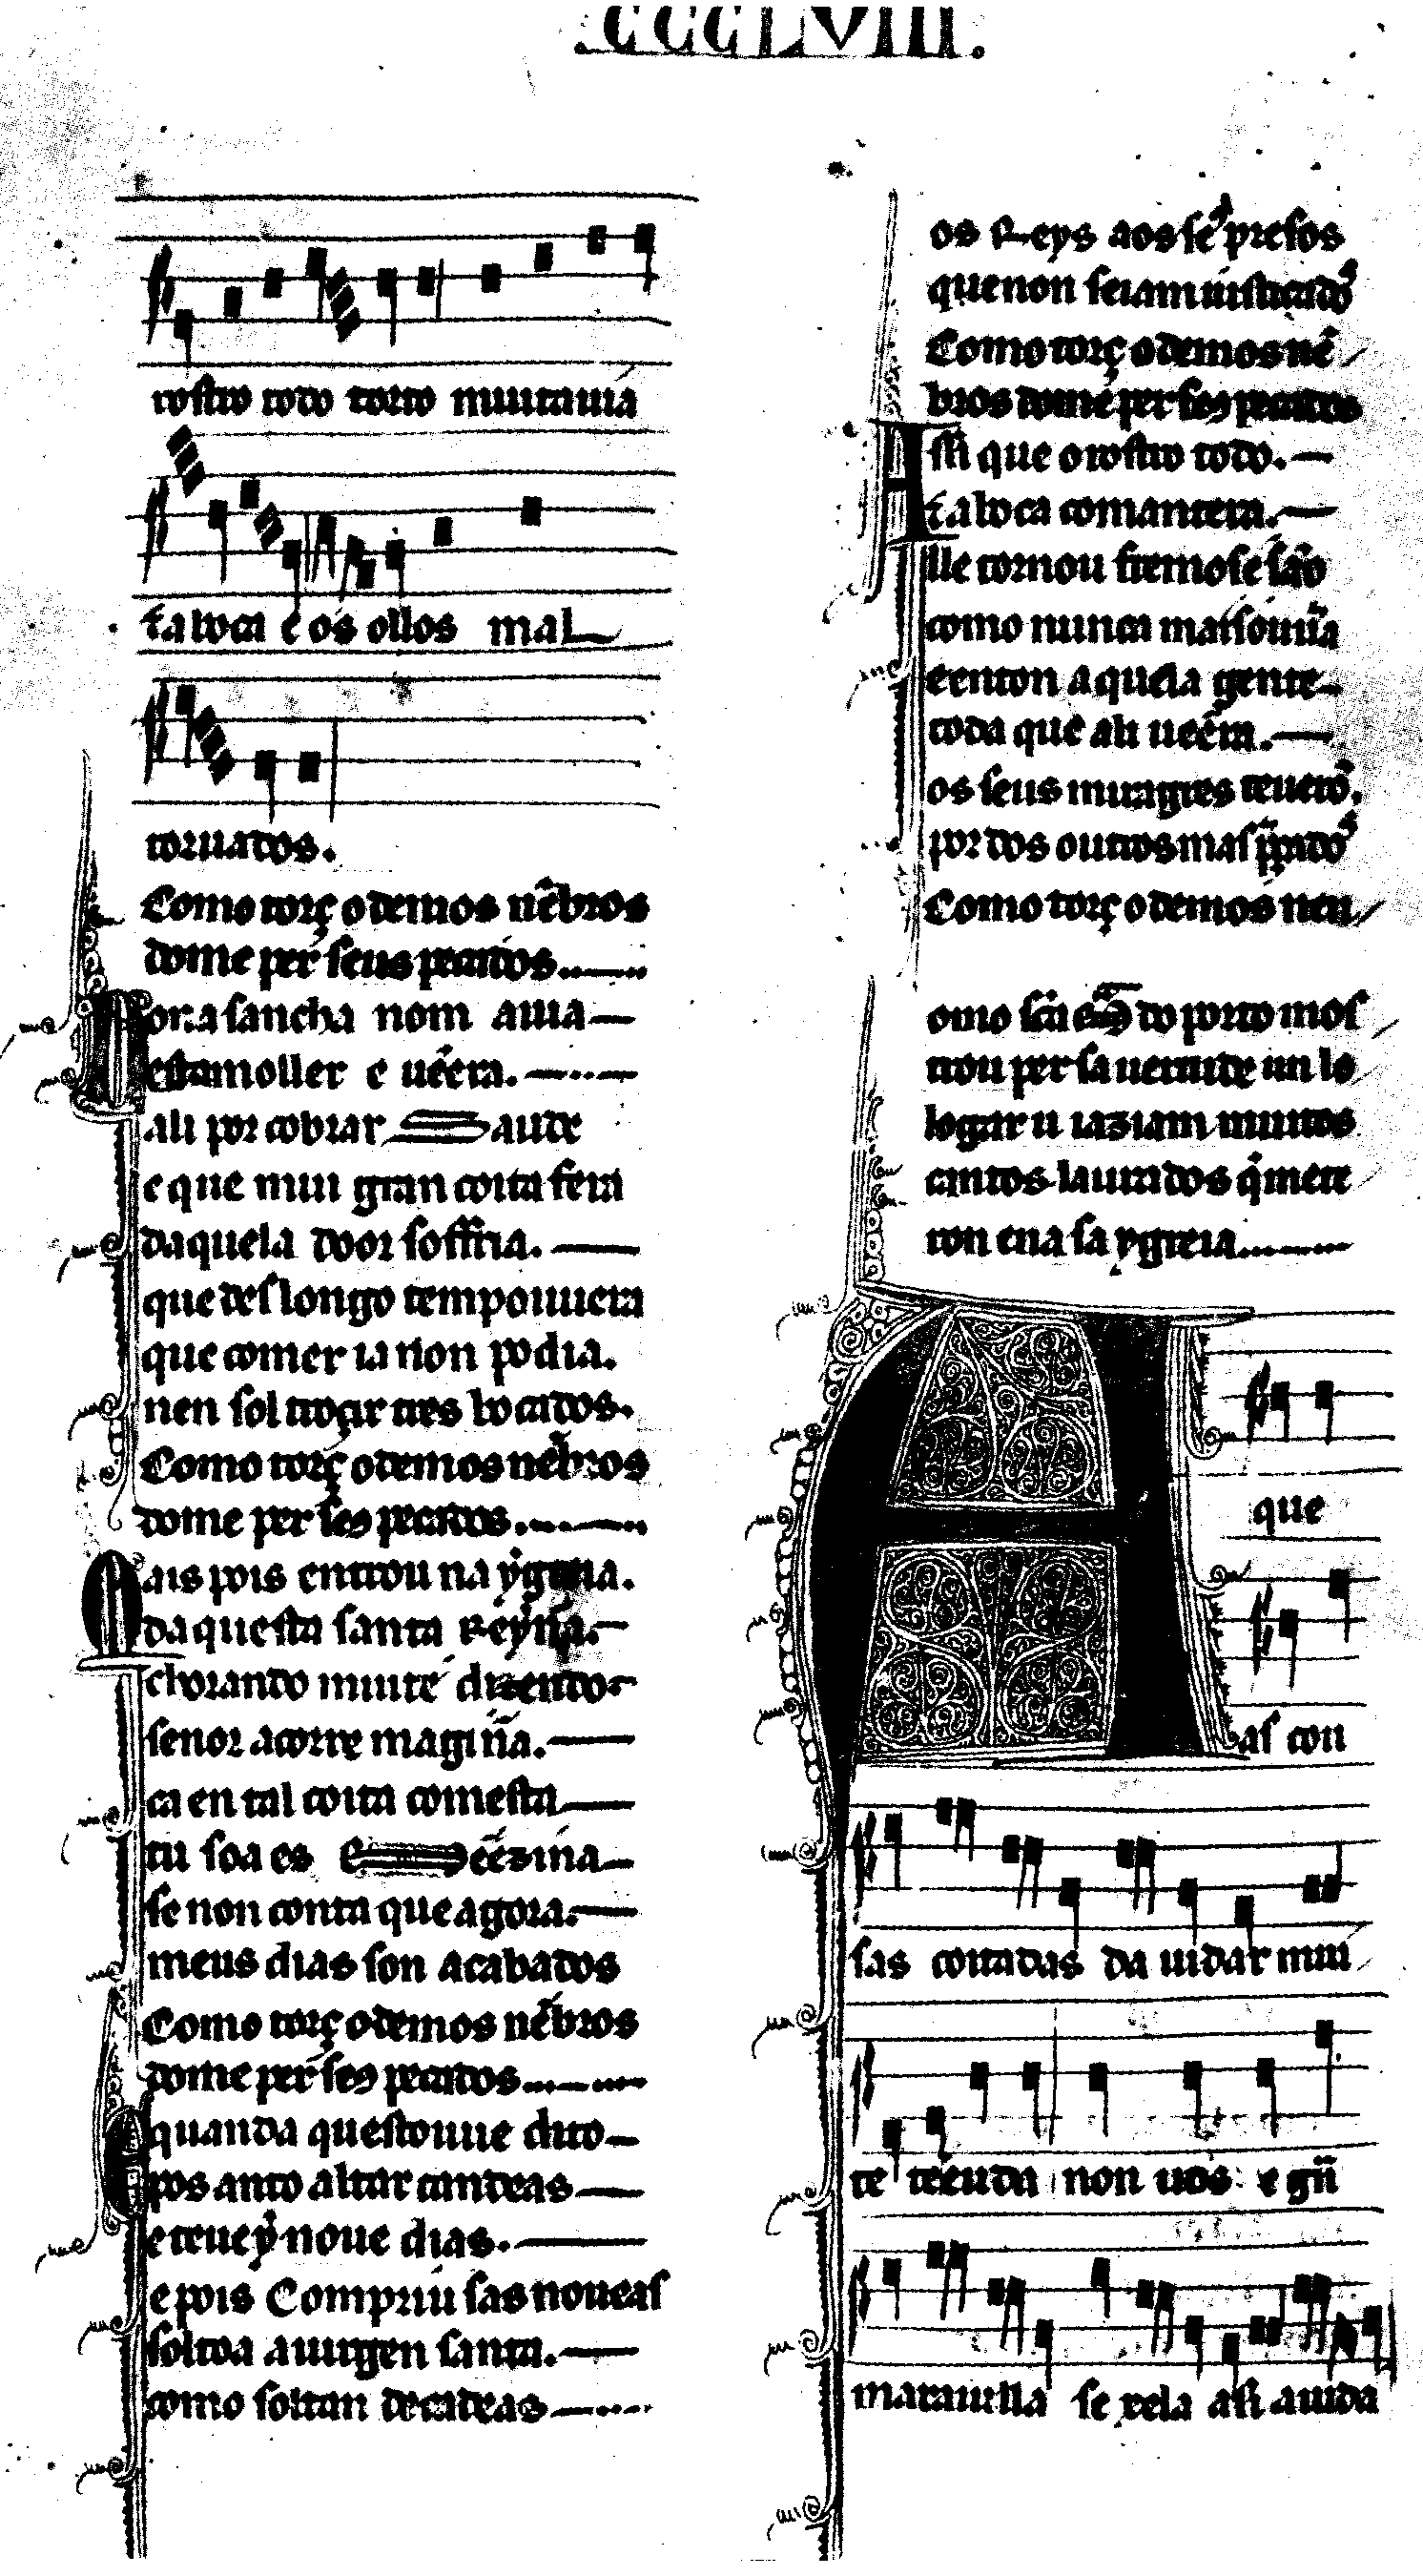 .CCCLVIII.
rostro todo torto muit auia
⁊ a boca e os ollos mal
toruados.
Como torç o demo os nẽbros
dome per seus pecados
Dona sancha nom auia
esta moller e uẽera.
ali por cobrar saude
e que mui gran coita fera
daquela door soffria.
que des longo tempo ouuera
que comer ia non podia.
nen sol troçir tres bocados.
Como torç o demo os nẽbros
dome per ses pecados.
Mais pois entrou na ygreia.
da questa santa Reỹna.
chorando muit e dizendo
senor acorre maginna.
ca en tal coita com esta
tu soa es meezinna
se non conta que agora.
meus dias son acabados
Como torç o demo os nẽbros
dome per ses pecados
E quand aquest ouue dito
pos ant o altar candeas
e teue y noue dias.
e pois Compriu sas noueas
soltoa a uirgen santa.
como soltan de cadeas
os Reys aos seus presos
que non seiam iustiçados
Como torç o demo os nẽ
bros dome per ses pecados
Assi que o rostro todo.
⁊ a boca com ant era.
lle tornou fremos e são
como nunca mais ouuera
e enton aquela gente
toda que ali ueera.
os seus miragres teuerõ
por dos outros mais preçados
Como torç o demo os nen
omo sca M do porto mos
trou per sa uertude un lo
logar u iazian muitos
cantos laurados q̃ mete
ron ena sa ygreia
A que
as cou
sas coitadas da uidar mui
te teẽuda non uos e gñ
marauilla se xela assi aiuda